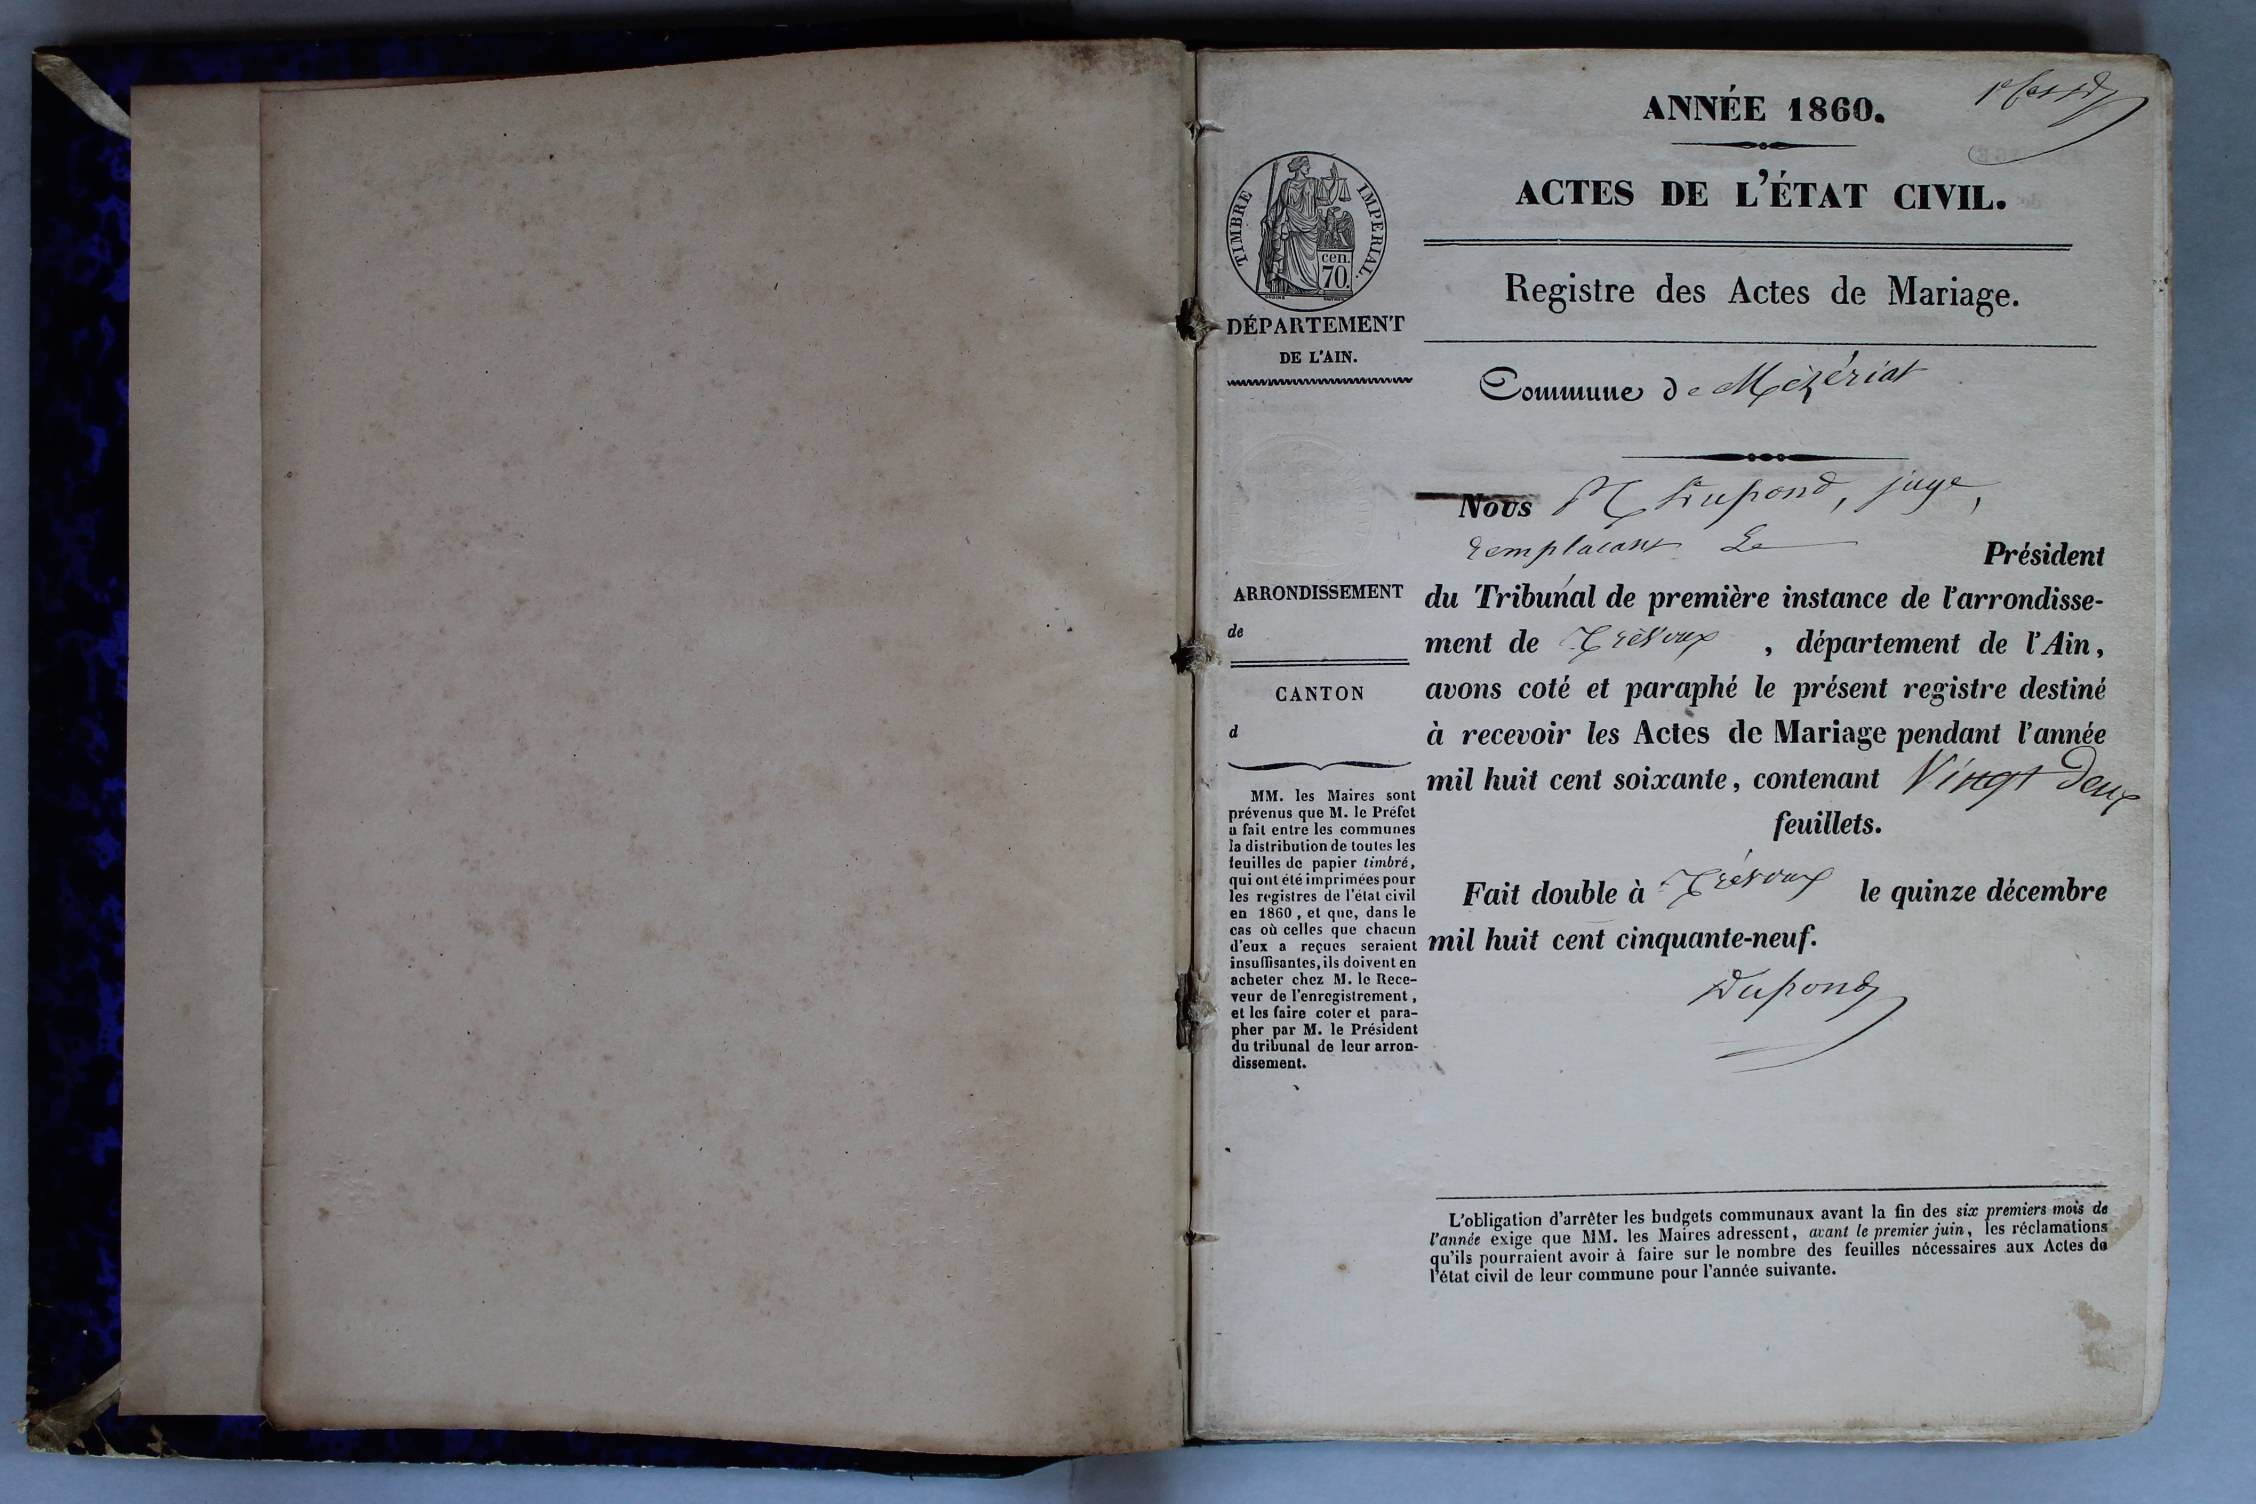 ANNÉE 1860.
ACTES DE L'ÉTAT CIVIL.
Registre des Actes de Mariage.
Commune de Mézériat
Nous M Dupond, juge,
remplaçant Le Président
du Tribunal de première instance de l'arrondisse-
ment de Trévoux , département de l'Ain,
avons coté et paraphé le présent registre destiné
à recevoir les Actes de Mariage pendant l'année
mil huit cent soixante, contenant Vingt Deux
feuillets.
Fait double à Trévoux le quinze décembre
mil huit cent cinquante-neuf.
Dupond
TIMBRE IMPÉRIAL.
cen.
70.
DÉPARTEMENT
DE L'AIN.
ARRONDISSEMENT
de
CANTON
d
MM. les Maires sont
prévenus que M. le Préfet
a fait entre les communes
la distribution de toutes les
feuilles de papier timbré,
qui ont été imprimées pour
les registres de l'état civil
en 1860, et que, dans le
cas où celles que chacun
d'eux a reçues seraient
insuffisantes, ils doivent en
acheter chez M. le Rece-
veur de l'enregistrement,
et les faire coter et para-
pher par M. le Président
du tribunal de leur arron-
dissement.
L'obligation d'arrêter les budgets communaux avant la fin des six premiers mois de
l'année exige que MM. les Maires adressent, avant le premier juin, les réclamations
qu'ils pourraient avoir à faire sur le nombre des feuilles nécessaires aux Actes de
l'état civil de leur commune pour l'année suivante.